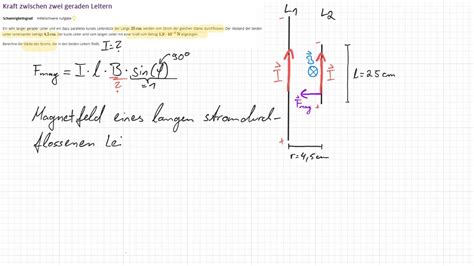 Kraft zwischen zwei geraden Leitern
Schwierigkeitsgrad: mittelschwere Aufgabe
Ein sehr langer gerader Leiter und ein dazu paralleles Leiterstück der Länge 25 cm, werden vom Strom der gleichen Stärke durchflossen. Der Abstand der beiden
Leiter voneinander beträgt 4,5 cm. Der kurze Leiter wird vom langen Leiter mit einer Kraft vom Betrag N angezogen.
Berechne die Stärke des Stroms, der in den beiden Leitern fließt.
I=?
90°
F_mag = I · l · B · sin(φ)
? =1
Magnetfeld eines langen stromdurch-
flossenen Lei
L1 L2
- -
I B I
F_mag
+ +
L=25cm
r=4,5cm